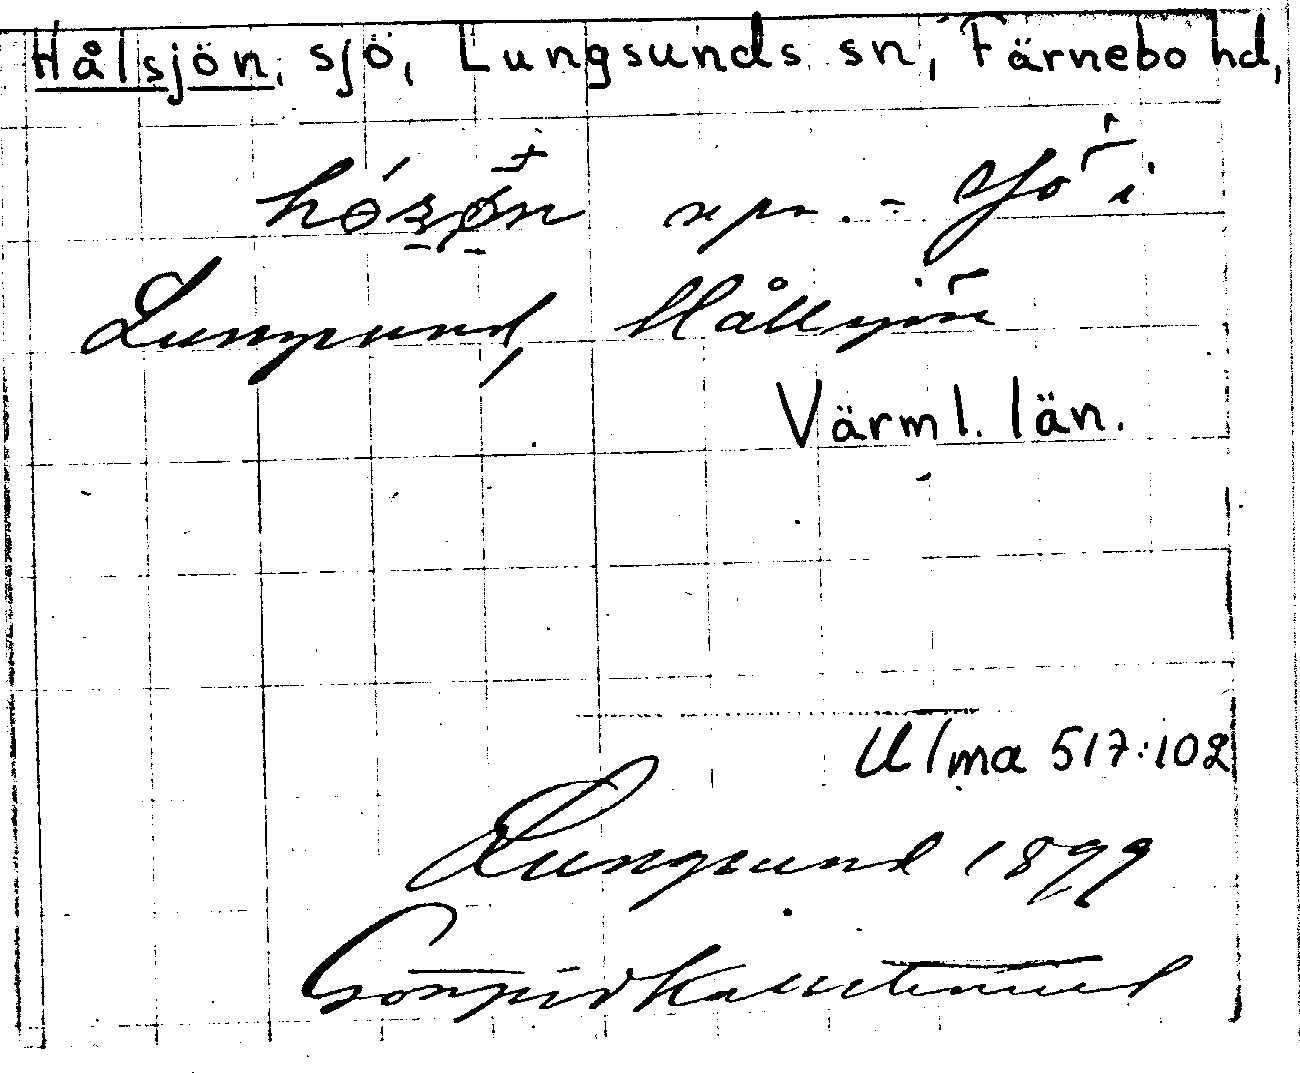 Hålsjön, sjö, Lungsunds sn, Färnebo hd,
npr. - sjö i
Lungsund, Hållsjön
Värml. län.
Ulma 517:102
Lungsund 1899